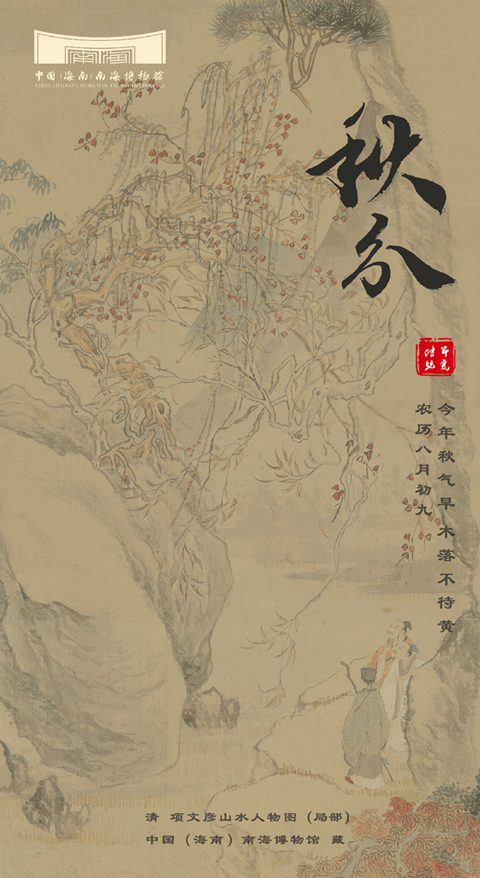 中国（海南）南海博物馆
CHINA (HAINAN) MUSEUM OF THE SOUTH CHINA SEA
秋分
今年秋气早木落不待黄
农历八月初九
清 项文彦山水人物图（局部）
中国（海南）南海博物馆 藏